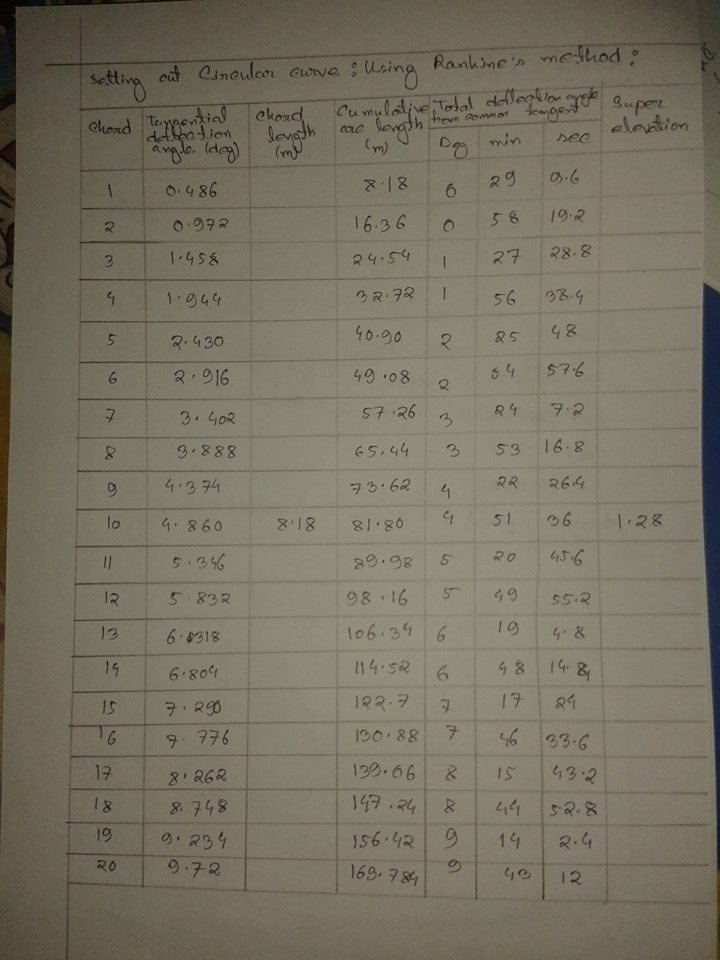 Setting out Circular curve : Using Rankine's method :
Chord Tangential deflection angle (deg) Chord length (m) Cumulative arc length (m) Total deflection angle from common tangent Super elevation
Deg min sec
1 0.486 8.18 0 29 9.6
2 0.972 16.36 0 58 19.2
3 1.458 24.54 1 27 28.8
4 1.944 32.72 1 56 38.4
5 2.430 40.90 2 25 48
6 2.916 49.08 2 54 57.6
7 3.402 57.26 3 24 7.2
8 3.888 65.44 3 53 16.8
9 4.374 73.62 4 22 26.4
10 4.860 8.18 81.80 4 51 36 1.28
11 5.346 89.98 5 20 45.6
12 5.832 98.16 5 49 55.2
13 6.318 106.34 6 19 4.8
14 6.804 114.52 6 48 14.8
15 7.290 122.7 7 17 24
16 7.776 130.88 7 46 33.6
17 8.262 139.06 8 15 43.2
18 8.748 147.24 8 44 52.8
19 9.234 156.42 9 14 2.4
20 9.72 163.784 9 43 12